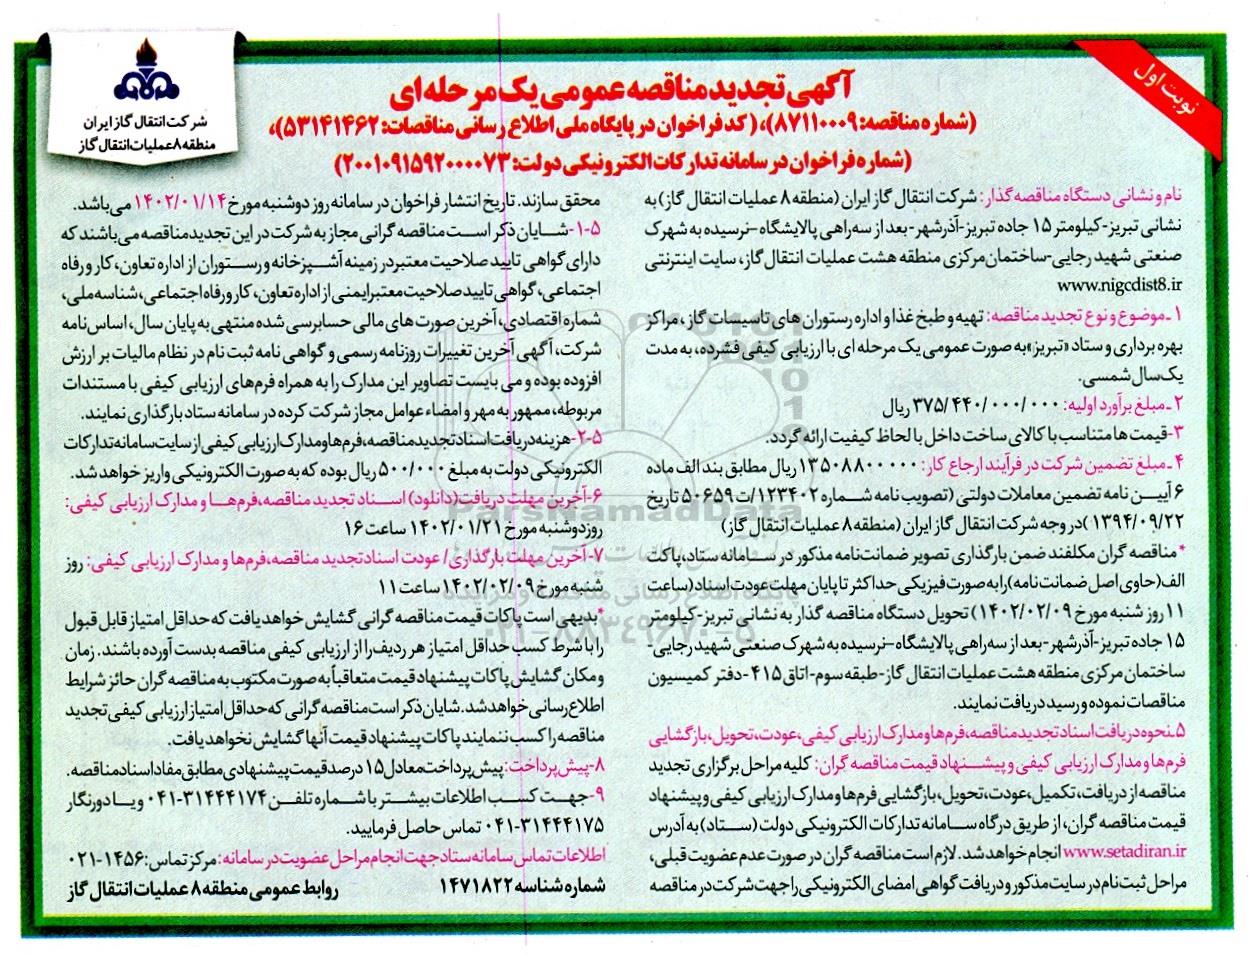 نوبت اول
شرکت انتقال گاز ایران
منطقه ۸ عملیات انتقال گاز
آگهی تجدید مناقصه عمومی یک مرحله ای
(شماره مناقصه: ۸۷۱۱۰۰۰۹)، (کد فراخوان در پایگاه ملی اطلاع رسانی مناقصات: ۵۳۱۴۱۴۶۲)،
(شماره فراخوان در سامانه تدارکات الکترونیکی دولت: ۲۰۰۱۰۹۱۵۹۲۰۰۰۰۷۳)
نام و نشانی دستگاه مناقصه گذار: شرکت انتقال گاز ایران (منطقه ۸ عملیات انتقال گاز) به
نشانی تبریز-کیلومتر ۱۵ جاده تبریز-آذرشهر-بعد از سه راهی پالایشگاه –نرسیده به شهرک
صنعتی شهید رجایی-ساختمان مرکزی منطقه هشت عملیات انتقال گاز، سایت اینترنتی
www.nigcdist8.ir
۱ـ موضوع و نوع تجدید مناقصه: تهیه و طبخ غذا و اداره رستوران های تاسیسات گاز، مراکز
بهره برداری و ستاد «تبریز» به صورت عمومی یک مرحله ای با ارزیابی کیفی فشرده، به مدت
یک سال شمسی.
۲ـ مبلغ برآورد اولیه: ۳۷۵/۴۴۰/۰۰۰/۰۰۰ ریال
۳-قیمت ها متناسب با کالای ساخت داخل با لحاظ کیفیت ارائه گردد.
۴ـ مبلغ تضمین شرکت در فرآیند ارجاع کار: ۱۳۵۰۸۸۰۰۰۰۰ ریال مطابق بند الف ماده
۶ آیین نامه تضمین معاملات دولتی (تصویب نامه شماره ۱۲۳۴۰۲/ت ۵۰۶۵۹ تاریخ
۱۳۹۴/۰۹/۲۲ )در وجه شرکت انتقال گاز ایران (منطقه ۸ عملیات انتقال گاز)
*مناقصه گران مکلفند ضمن بارگذاری تصویر ضمانت نامه مذکور در سامانه ستاد، پاکت
الف(حاوی اصل ضمانت نامه) را به صورت فیزیکی حداکثر تا پایان مهلت عودت اسناد (ساعت
۱۱ روز شنبه مورخ ۱۴۰۲/۰۲/۰۹) تحویل دستگاه مناقصه گذار به نشانی تبریز-کیلومتر
۱۵ جاده تبریز-آذرشهر-بعد از سه راهی پالایشگاه –نرسیده به شهرک صنعتی شهید رجایی-
ساختمان مرکزی منطقه هشت عملیات انتقال گاز-طبقه سوم-اتاق ۴۱۵-دفتر کمیسیون
مناقصات نموده و رسید دریافت نمایند.
۵ـ نحوه دریافت اسناد تجدید مناقصه، فرم ها و مدارک ارزیابی کیفی، عودت، تحویل، بازگشایی
فرم ها و مدارک ارزیابی کیفی و پیشنهاد قیمت مناقصه گران: کلیه مراحل برگزاری تجدید
مناقصه از دریافت، تکمیل، عودت، تحویل، بازگشایی فرم ها و مدارک ارزیابی کیفی و پیشنهاد
قیمت مناقصه گران، از طریق درگاه سامانه تدارکات الکترونیکی دولت (ستاد) به آدرس
www.setadiran.ir انجام خواهد شد. لازم است مناقصه گران در صورت عدم عضویت قبلی،
مراحل ثبت نام در سایت مذکور و دریافت گواهی امضای الکترونیکی را جهت شرکت در مناقصه
محقق سازند. تاریخ انتشار فراخوان در سامانه روز دوشنبه مورخ ۱۴۰۲/۰۱/۱۴ می باشد.
۵-۱-شایان ذکر است مناقصه گرانی مجاز به شرکت در این تجدید مناقصه می باشند که
دارای گواهی تایید صلاحیت معتبر در زمینه آشپزخانه و رستوران از اداره تعاون، کار و رفاه
اجتماعی، گواهی تایید صلاحیت معتبر ایمنی از اداره تعاون، کار و رفاه اجتماعی، شناسه ملی،
شماره اقتصادی، آخرین صورت های مالی حسابرسی شده منتهی به پایان سال، اساس نامه
شرکت، آگهی آخرین تغییرات روزنامه رسمی و گواهی نامه ثبت نام در نظام مالیات بر ارزش
افزوده بوده و می بایست تصاویر این مدارک را به همراه فرم های ارزیابی کیفی با مستندات
مربوطه، ممهور به مهر و امضاء عوامل مجاز شرکت کرده در سامانه ستاد بارگذاری نمایند.
۵-۲-هزینه دریافت اسناد تجدید مناقصه، فرم ها و مدارک ارزیابی کیفی از سایت سامانه تدارکات
الکترونیکی دولت به مبلغ ۵۰۰/۰۰۰ ریال بوده که به صورت الکترونیکی واریز خواهد شد.
۶-آخرین مهلت دریافت(دانلود) اسناد تجدید مناقصه، فرم ها و مدارک ارزیابی کیفی:
روز دوشنبه مورخ ۱۴۰۲/۰۱/۲۱ ساعت ۱۶
۷-آخرین مهلت بارگذاری/ عودت اسناد تجدید مناقصه، فرم ها و مدارک ارزیابی کیفی: روز
شنبه مورخ ۱۴۰۲/۰۲/۰۹ ساعت ۱۱
*بدیهی است پاکات قیمت مناقصه گرانی گشایش خواهد یافت که حداقل امتیاز قابل قبول
را با شرط کسب حداقل امتیاز هر ردیف را از ارزیابی کیفی مناقصه بدست آورده باشند. زمان
و مکان گشایش پاکات پیشنهاد قیمت متعاقباً به صورت مکتوب به مناقصه گران حائز شرایط
اطلاع رسانی خواهد شد. شایان ذکر است مناقصه گرانی که حداقل امتیاز ارزیابی کیفی تجدید
مناقصه را کسب ننمایند پاکات پیشنهاد قیمت آنها گشایش نخواهد یافت.
۸-پیش پرداخت: پیش پرداخت معادل ۱۵ درصد قیمت پیشنهادی مطابق مفاد اسناد مناقصه.
۹-جهت کسب اطلاعات بیشتر با شماره تلفن ۳۱۴۴۴۱۷۴-۰۴۱ و یا دورنگار
۳۱۴۴۴۱۷۵-۰۴۱ تماس حاصل فرمایید.
اطلاعات تماس سامانه ستاد جهت انجام مراحل عضویت در سامانه: مرکز تماس: ۱۴۵۶-۰۲۱
شماره شناسه ۱۴۷۱۸۲۲ روابط عمومی منطقه ۸ عملیات انتقال گاز
ParsNamadData
۰۲۱-۸۸۳۴۹۶۷۰-۵